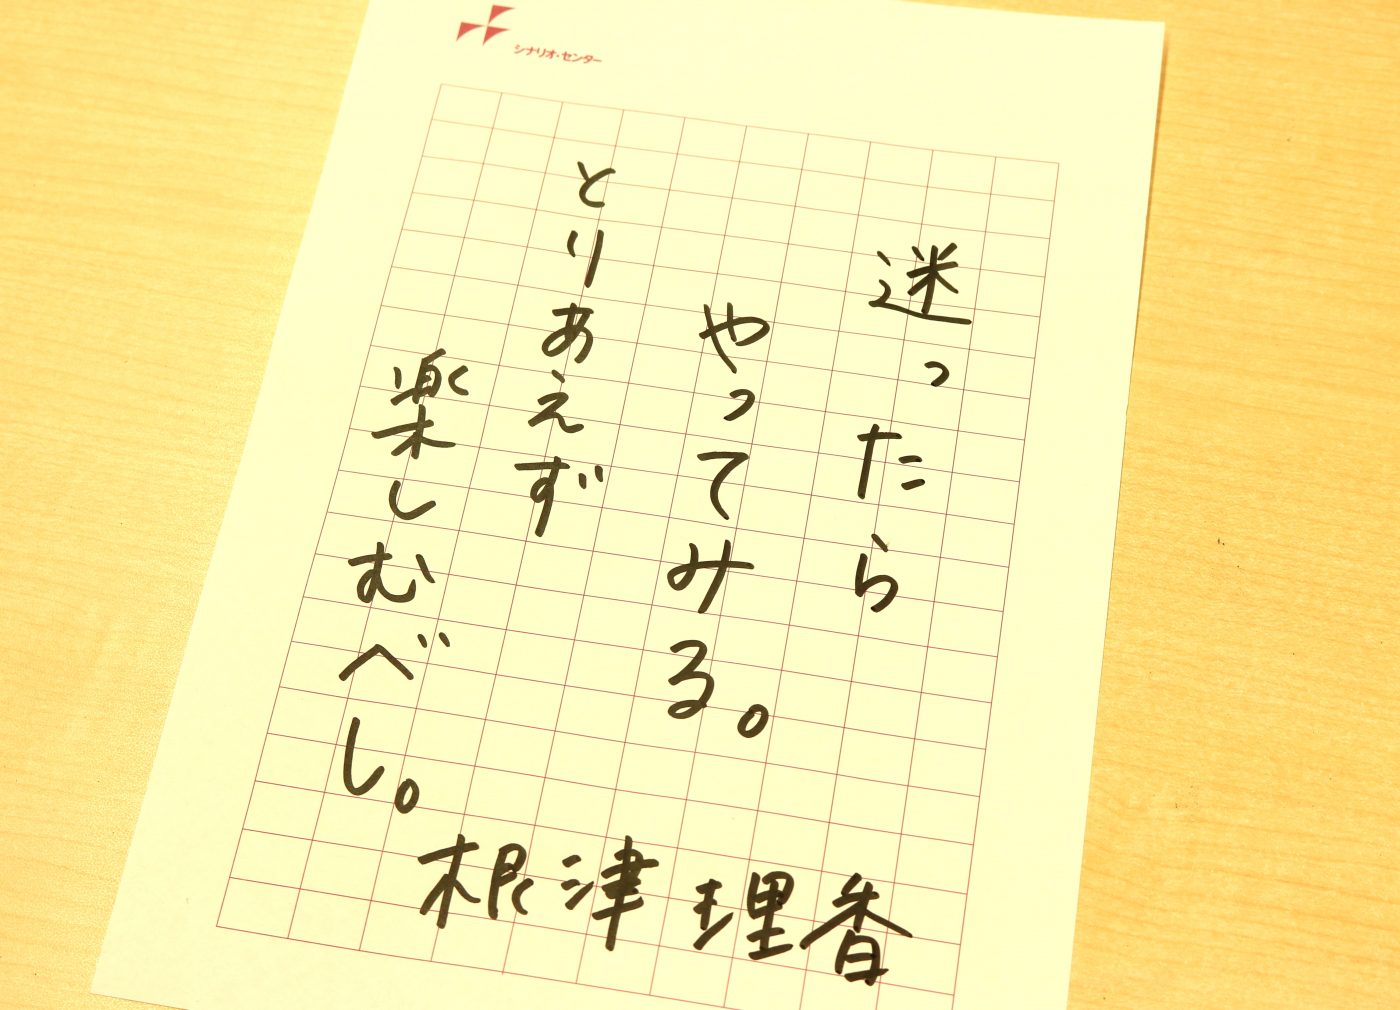 シナリオ・センター
迷ったら
やってみる。
とりあえず
楽しむべし。
根津理香